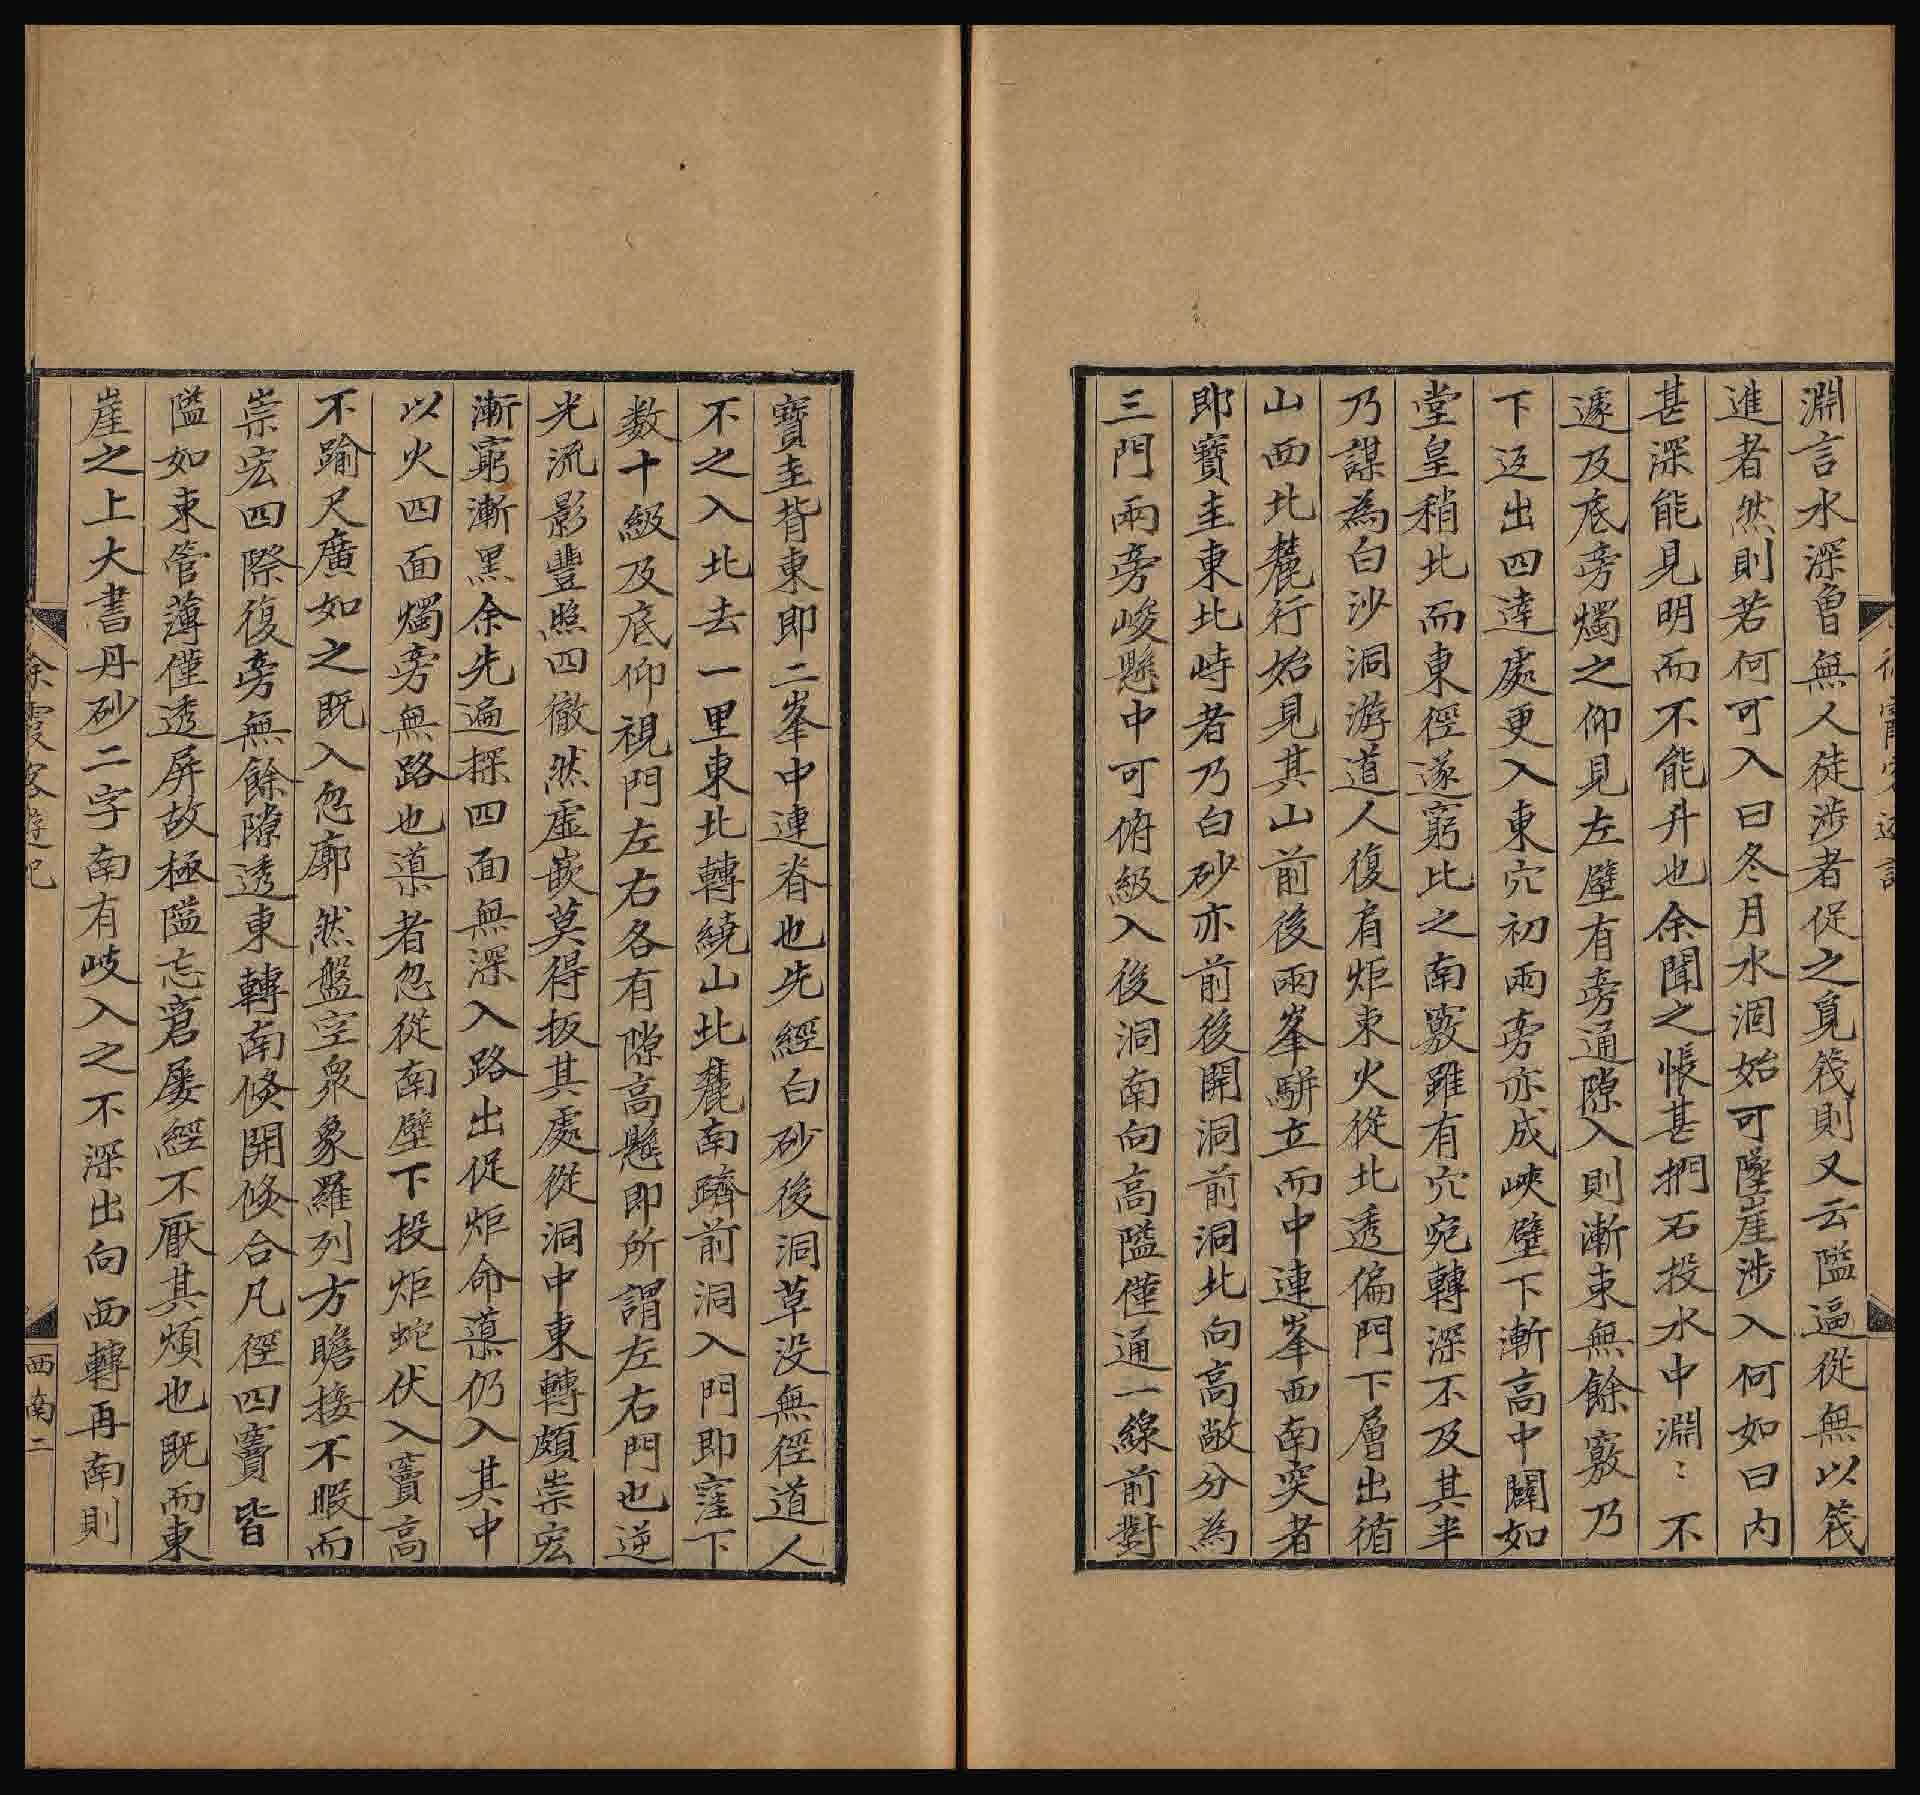 淵言水深魯無人徒涉者促之覓筏則又云隘逼從無以筏
進者然則若何可可入曰冬月水涸始可墜崖涉入何如曰内
甚深能見明而不能升也余聞之悵甚捫石投水中淵〻不
遽及底旁燭之仰見左壁有旁通隙入則漸束無餘竅乃
下返出四達處更入東穴初兩旁亦成峽壁下漸高中闢如
堂皇稍北而東徑遂窮比之南竅雖有穴宛轉深不及其半
乃謀為白沙洞游道人復肩炬束火從北透偏門下層出循
山西北麓行始見其山前後兩峯駢立而中連峯西南突者
即寶圭東北峙者乃白砂亦前後開洞前洞北向高敞分為
三門兩旁峻懸中可俯級入後洞南向高隘僅通一線前對
寶圭背東即二峯中連脊也先經白砂後洞草没無徑道人
不之入北去一里東北轉繞山北麓南躋前洞入門即窪下
数十級及底仰視門左右各有隙高懸即所謂左右門也逆
光流影豐照四徹然虛嵌莫得扳其處從洞中東轉頗崇宏
漸窮漸黑余先遍探四面無深入路出促炬命導仍入其中
以火四面燭旁無路也導者忽從南壁下投炬蛇伏入竇高
不踰尺廣如之既入忽廓然盤空衆象羅列方瞻接不暇而
崇宏四際復旁無餘隙透東轉南倏開倏合凡徑四竇皆
隘如束管薄僅透屏故極隘忘窘屡經不厭其煩也既而東
崖之上大書丹砂二字南有岐入之不深出向西轉再南則
徐霞客遊記
西南二